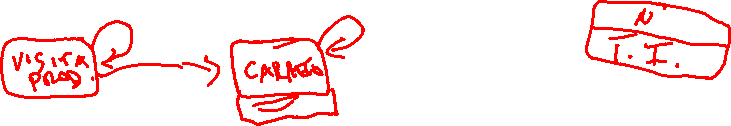 VISITA
PROD.
CARRITO
N
T.I.